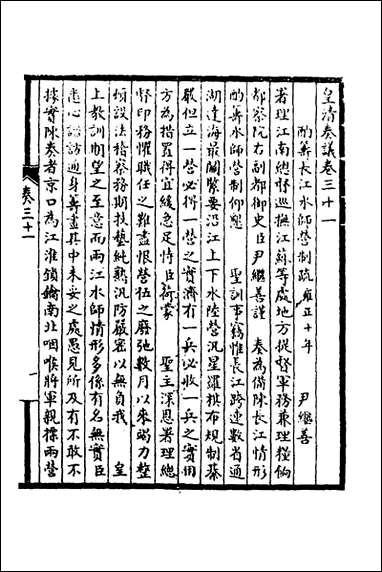 皇清奏議卷三十一
酌籌長江水師營制疏 雍正十年 尹繼善
署理江南總督巡撫江蘇等處地方提督軍務兼理糧餉
都察院右副都御史臣尹繼善謹 奏為備陳長江情形
酌籌水師營制仰懇 聖訓事竊惟長江跨連數省通
湖達海最關緊要沿江上下水陸營汛星羅棋布規制綦
嚴但立一營必得一營之實濟有一兵必收一兵之實用
方為措置得宜緩急足恃臣荷蒙 聖主深恩署理總
督印務懼職任之難盡恨營伍之廢弛數月以來竭力整
頓設法稽察務期技藝純熟汛防嚴密以無負我 皇
上教訓期望之至意而兩江水師情形多係有名無實臣
悉心諮訪通身籌畫其中未妥之處愚見所及有不敢不
據實陳奏者京口為江淮鎖鑰南北咽喉將軍親標兩營
奏三十一
一